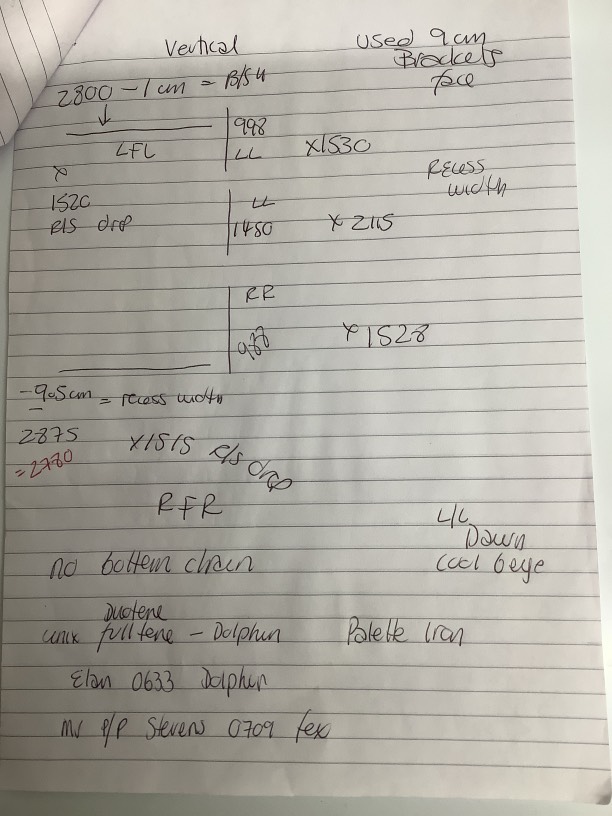 Vertical
used 9cm
Brackets
face
2800 - 1 cm = B/S4
998
LFL
LL
x1530
Recess
width
x
1520
LL
R/S drop
1480
x 2115
RR
988
x1528
-9.5cm = recess width
2875
x1515 R/S drop
=2780
RFR
L/L
Down
no bottem chain
cool beye
Duotene
unix fulltene - Dolphin
Palette Iron
Elan 0633 Dolphin
mr P/P Stevens 0709 fex